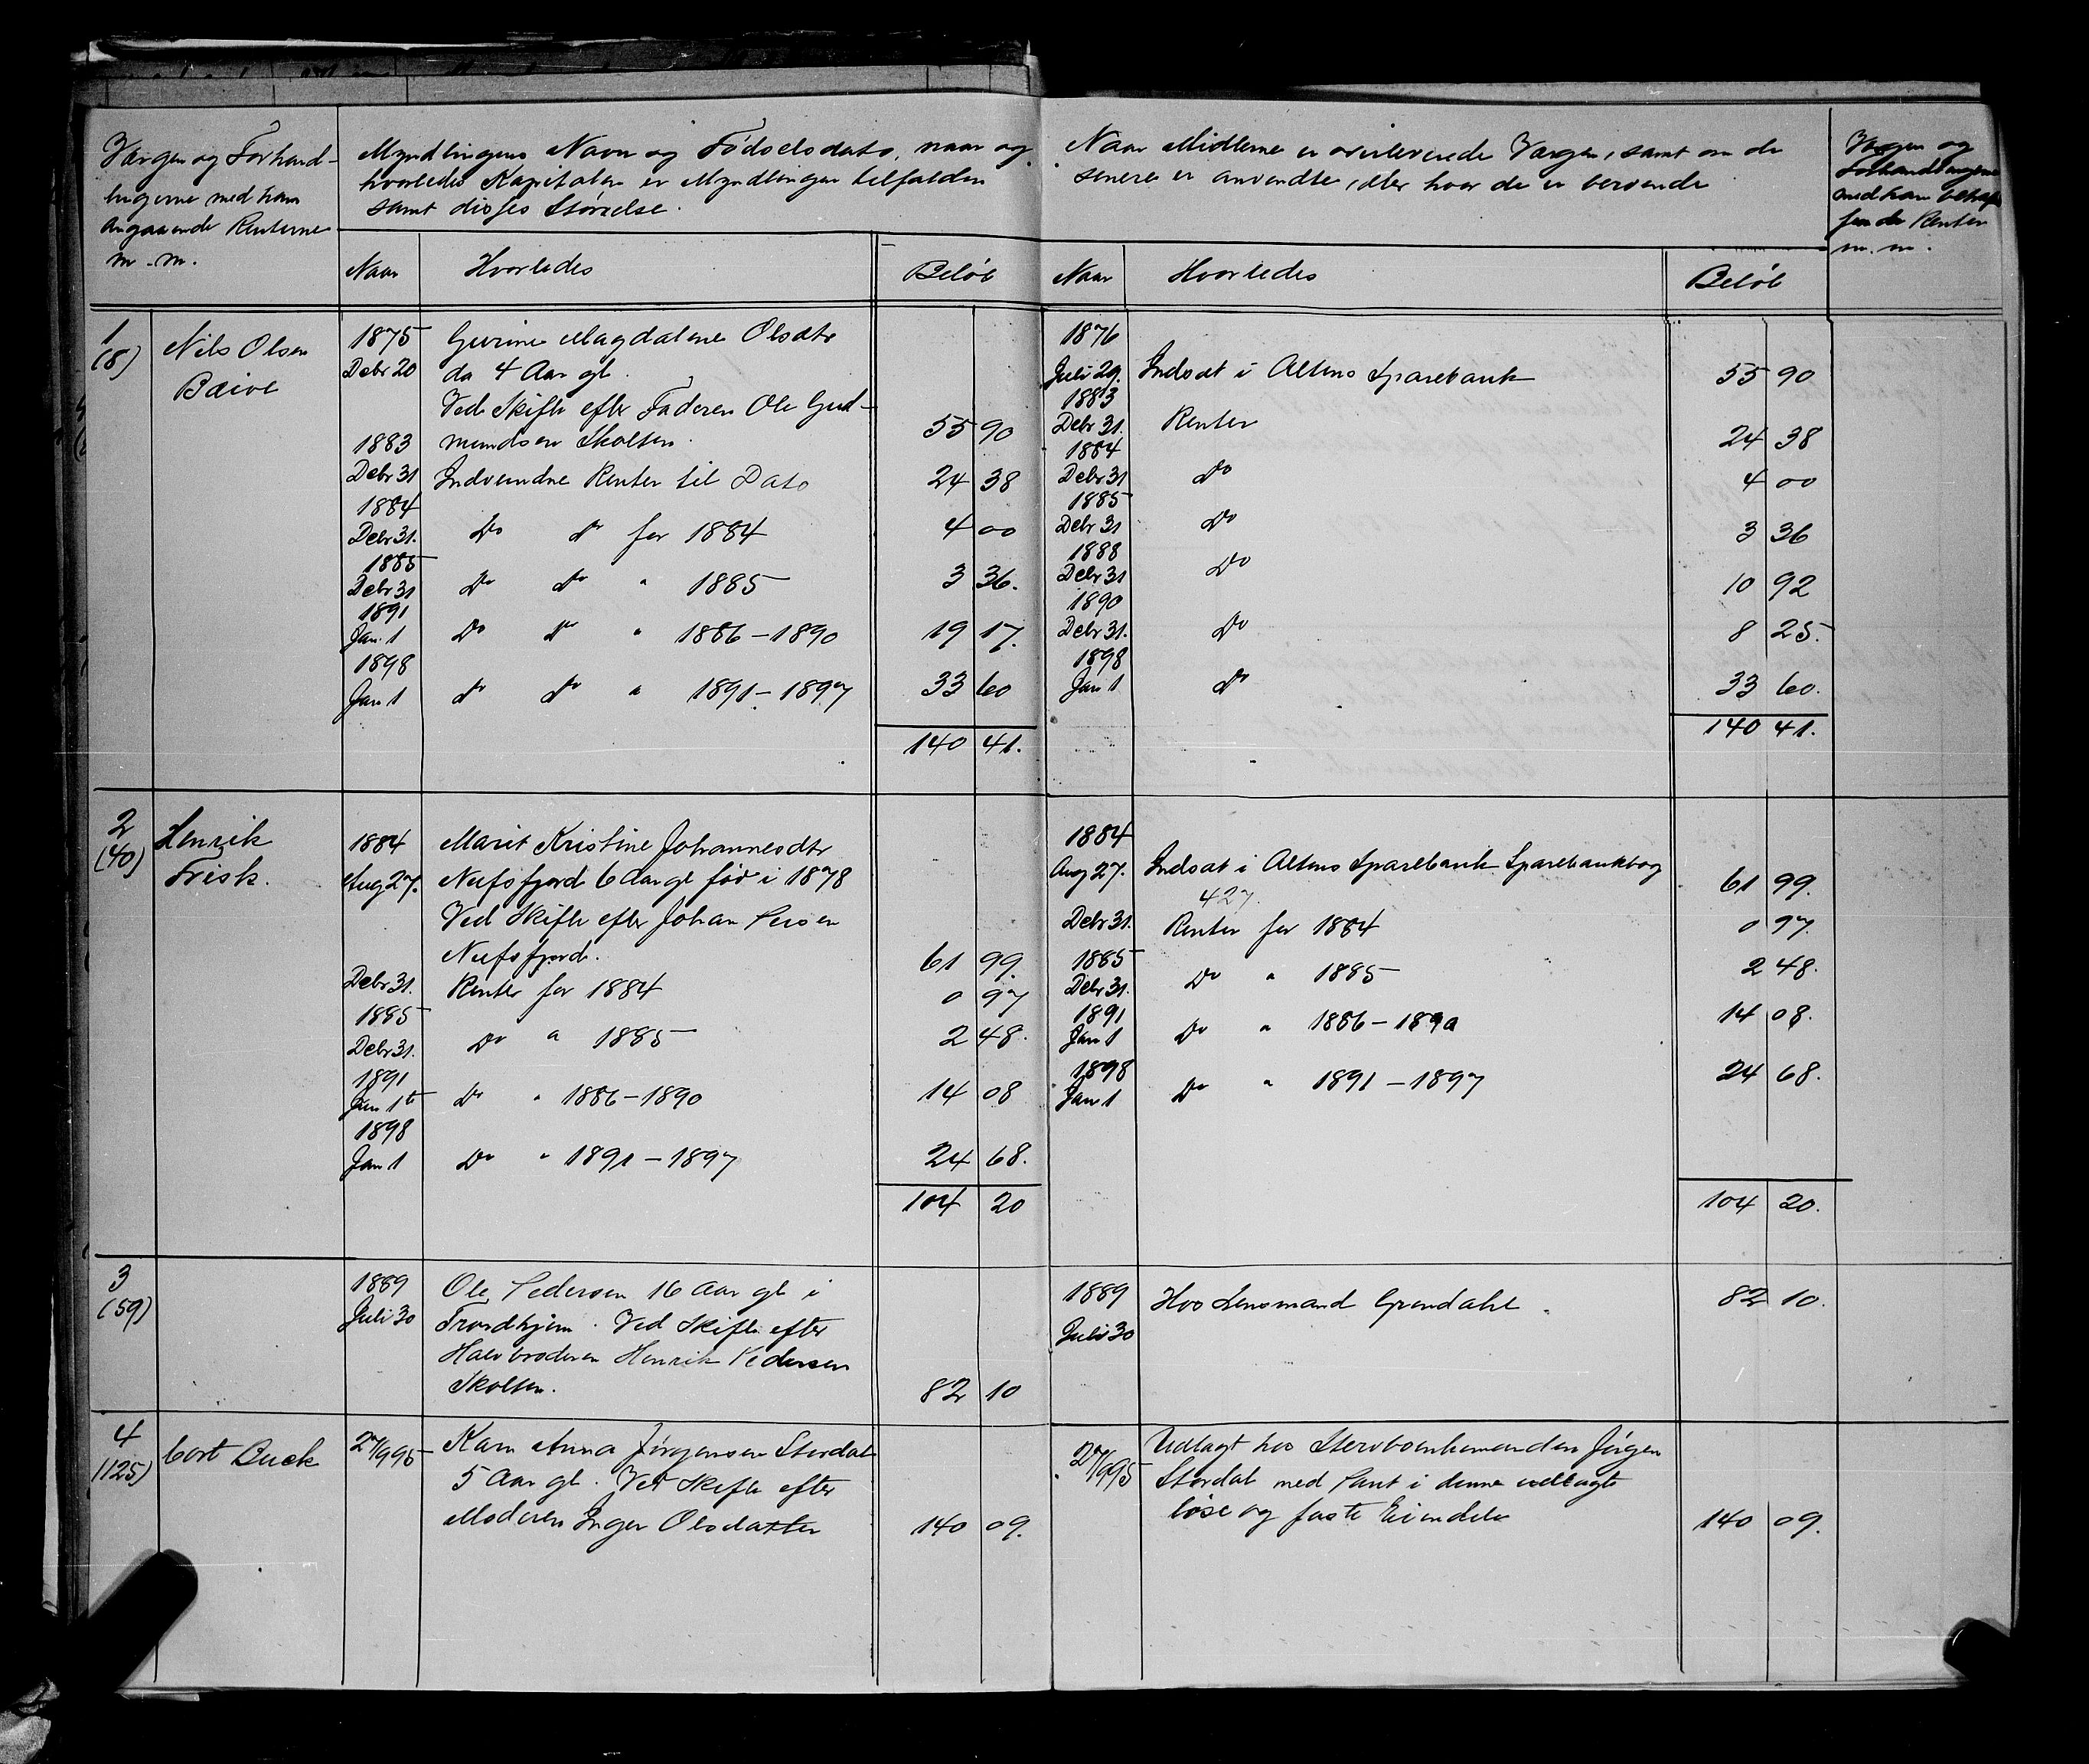 Værgen og Forhand-
lingerne med ham
angaaende Renterne
m. m.
Myndlingens Navn og Fødselsdato, naar og
hvorledes Kapitalen er Myndlingen tilfalden
samt disses Størrelse.
Naar
Hvorledes
Beløb
Naar Midlerne er overleverede Værgen, samt om de
senere er anvendte, eller hvor de er beroende
Naar
Hvorledes
Beløb
Værgen og
Forhandlingerne
med ham betræf
fende Renter
m. m.
1
(8)
Nils Olsen
Bæive
1875
Debr 20
Magdalene Olsdtr
da 4 Aar gl.
Ved Skifte efter Faderen Ole Gud-
mundsen Skolten.
55 90
1883
Debr 31
Indvundne Renter til Dato
24 38
1884
Debr 31.
Do do for 1884
4 00
1885
Debr 31
Do do " 1885
3 36.
1891
Jan. 1
Do do " 1886-1890
19 17.
1898
Jan 1
do do " 1891-1897
33 60
140 41.
1876
Juli 29.
Indsat i Altens Sparebank
55 90
1883
Debr 31.
Renter
24 38
1884
Debr 31
do
4 00
1885
Debr 31
do
3 36
1888
Debr 31
do
10 92
1890
Debr 31.
do
8 25.
1898
Jan 1
do
33 60.
140 41.
2
(40)
Henrik
Frisk.
1884
Aug 27.
Marit Kristine Johannesdtr
Næfsfjord 6 Aar gl født i 1878
Ved Skifte efter Johan Persen
Næfsfjord.
61 99.
Debr 31.
Renter for 1884
0 97
1885
Debr 31.
Do " 1885
2 48.
1891
Jan 1te
Do " 1886-1890
14 08
1898
Jan 1
Do " 1891-1897
24 68.
104 20
1884
Aug 27.
Indsat i Altens Sparebank Sparebankbog
427
61 99.
Debr 31.
Renter for 1884
0 97.
1885
Debr 31.
Do " 1885
2 48.
1891
Jan 1
Do " 1886-1890
14 08.
1898
Jan 1
Do " 1891-1897
24 68.
104 20.
3
(59)
1889
Juli 30
Ole Pedersen 16 Aar gl i
Trondhjem. Ved Skifte efter
Halvbroderen Henrik Pedersen
Skolten.
82 10
1889
Juli 30
Hos Lensmand Grøndahl.
82 10.
4
(125)
Cort Buck
27/9 95
Karn Anna Jørgensen Stordal
5 Aar gl. Ved Skifte efter
Moderen Inger Olsdatter
140 09.
27/9 95
Udlagt hos Stervboenkemanden Jørgen
Stordal med Pant i denne udlagte
løse og faste Eiendele
140 09.